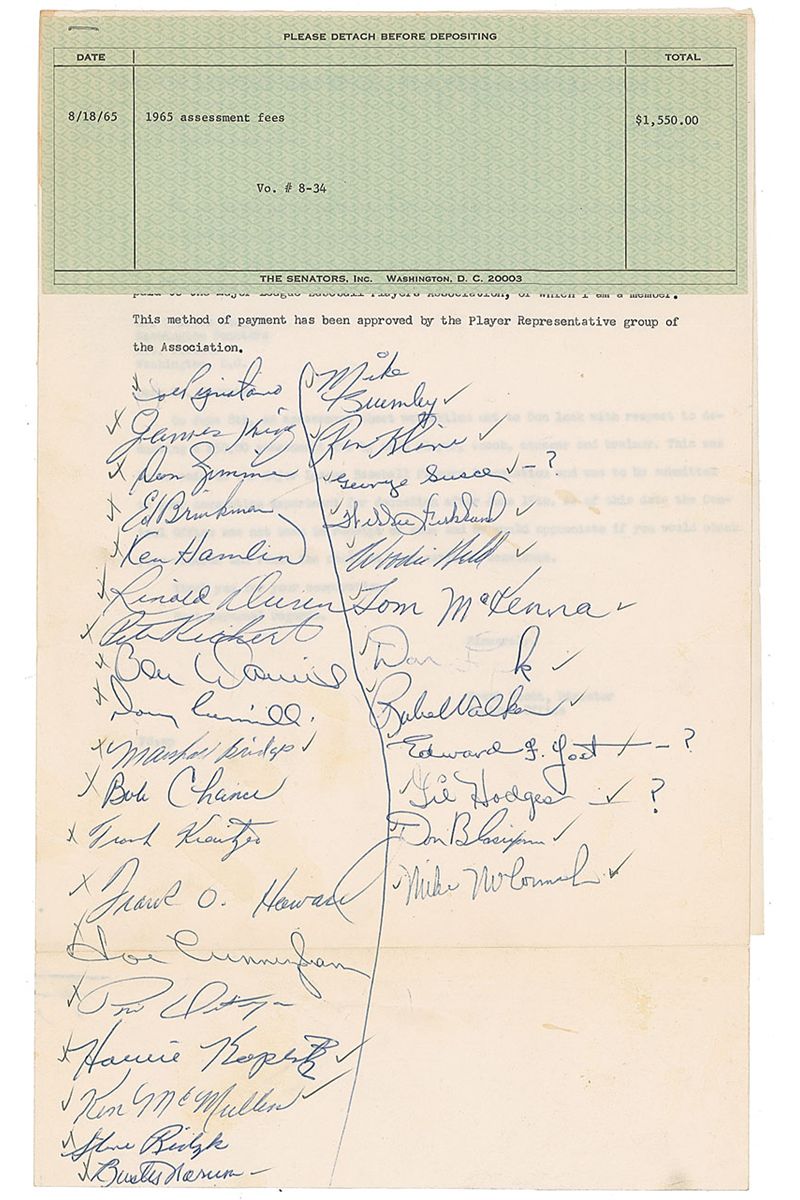 PLEASE DETACH BEFORE DEPOSITING
DATE TOTAL
8/18/65 1965 assessment fees $1,550.00
Vo. # 8-34
THE SENATORS, Inc. WASHINGTON, D. C. 20003
paid to the Major League Baseball Players Association, of which I am a member.
This method of payment has been approved by the Player Representative group of
the Association.
Joe Pignatano
James King
Don Zimmer
Ed Brinkman
Ken Hamlin
Rinold Duren
Pete Richert
Marshall Bridges
Bob Chance
Frank Kreutzer
Frank O. Howard
Joe Cunningham
Howie Koplitz
Ken McMullen
Steve Ridzik
Buster Narum
Mike
Brumley
Ron Kline
George Susce - ?
Willie Kirkland
Woodie Held
Tom McKenna
Don
Rube Walker
Edward F. Yost - ?
Gil Hodges ?
Don Blasingame
Mike McCormick